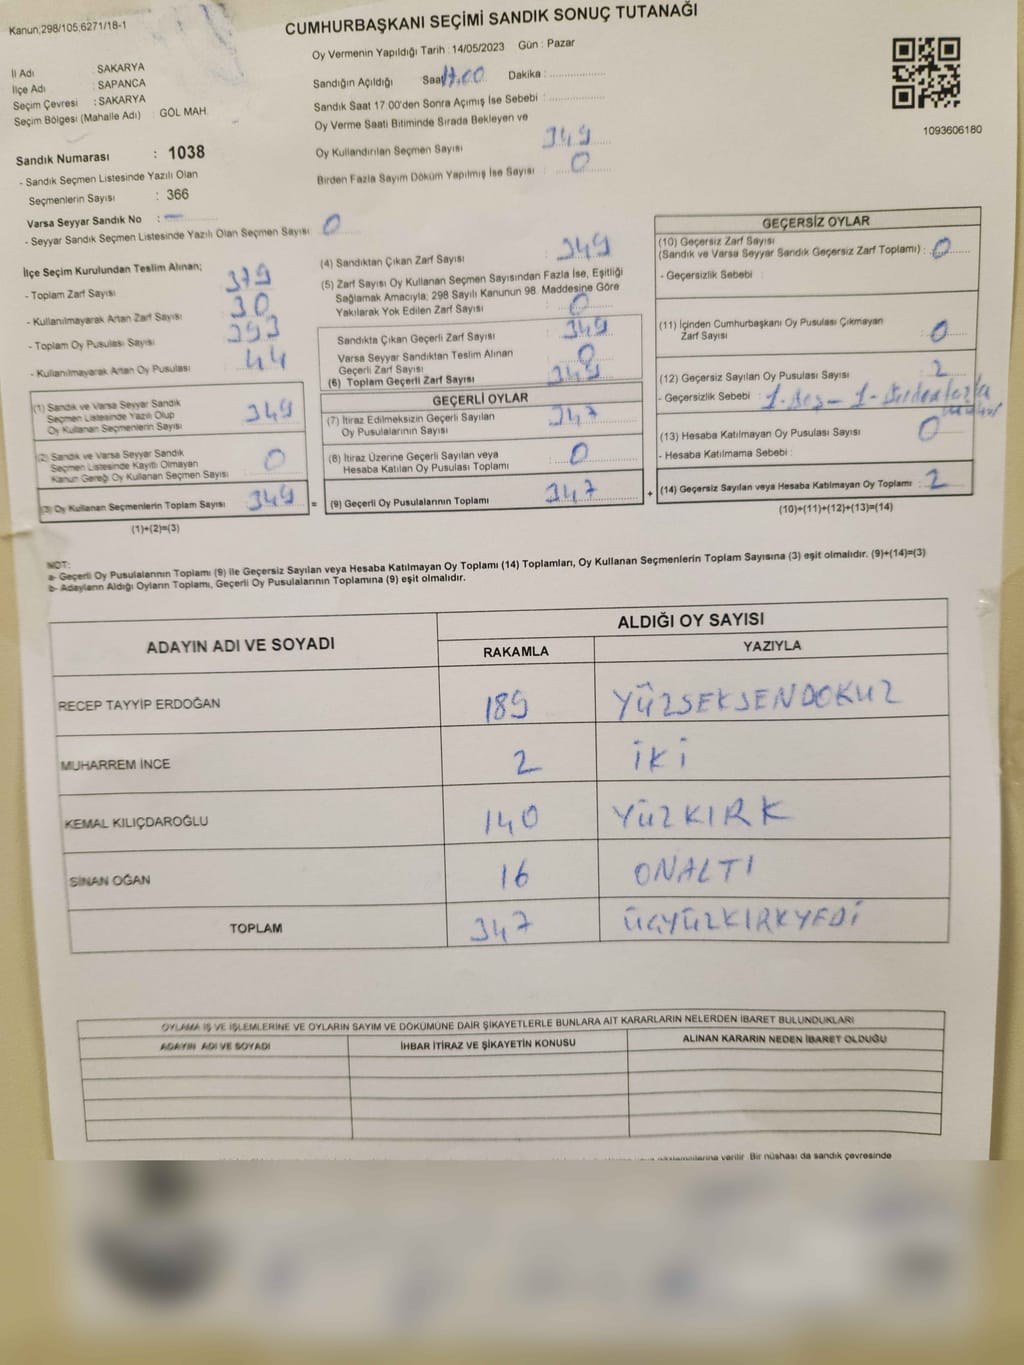 Kanun;298/105;6271/18-1
CUMHURBAŞKANI SEÇİMİ SANDIK SONUÇ TUTANAĞI
Oy Vermenin Yapıldığı Tarih : 14/05/2023 Gün : Pazar
İl Adı : SAKARYA
İlçe Adı : SAPANCA
Seçim Çevresi : SAKARYA
Seçim Bölgesi (Mahalle Adı) : GÖL MAH.
Sandık Numarası : 1038
- Sandık Seçmen Listesinde Yazılı Olan
Seçmenlerin Sayısı : 366
Varsa Seyyar Sandık No : —
- Seyyar Sandık Seçmen Listesinde Yazılı Olan Seçmen Sayısı 0
Sandığın Açıldığı Saat 17.00 Dakika :
Sandık Saat 17:00'den Sonra Açımış İse Sebebi :
Oy Verme Saati Bitiminde Sırada Bekleyen ve
Oy Kullandırılan Seçmen Sayısı 349
Birden Fazla Sayım Döküm Yapılmış İse Sayısı : 0
1093606180
İlçe Seçim Kurulundan Teslim Alınan;
- Toplam Zarf Sayısı 379
- Kullanılmayarak Artan Zarf Sayısı 30
- Toplam Oy Pusulası Sayısı 393
- Kullanılmayarak Artan Oy Pusulası 44
(1) Sandık ve Varsa Seyyar Sandık
Seçmen Listesinde Yazılı Olup
Oy Kullanan Seçmenlerin Sayısı 349
(2) Sandık ve Varsa Seyyar Sandık
Seçmen Listesinde Kayıtlı Olmayan
Kanun Gereği Oy Kullanan Seçmen Sayısı 0
(3) Oy Kullanan Seçmenlerin Toplam Sayısı 349 =
(1)+(2)=(3)
(4) Sandıktan Çıkan Zarf Sayısı : 349
(5) Zarf Sayısı Oy Kullanan Seçmen Sayısından Fazla İse, Eşitliği
Sağlamak Amacıyla; 298 Sayılı Kanunun 98. Maddesine Göre
Yakılarak Yok Edilen Zarf Sayısı : 0
Sandıkta Çıkan Geçerli Zarf Sayısı : 349
Varsa Seyyar Sandıktan Teslim Alınan
Geçerli Zarf Sayısı : 0
(6) Toplam Geçerli Zarf Sayısı 349
GEÇERLİ OYLAR
(7) İtiraz Edilmeksizin Geçerli Sayılan
Oy Pusulalarının Sayısı : 347
(8) İtiraz Üzerine Geçerli Sayılan veya
Hesaba Katılan Oy Pusulası Toplamı : 0
(9) Geçerli Oy Pusulalarının Toplamı : 347 +
GEÇERSİZ OYLAR
(10) Geçersiz Zarf Sayısı
(Sandık ve Varsa Seyyar Sandık Geçersiz Zarf Toplamı) : 0
- Geçersizlik Sebebi :
(11) İçinden Cumhurbaşkanı Oy Pusulası Çıkmayan
Zarf Sayısı : 0
(12) Geçersiz Sayılan Oy Pusulası Sayısı : 2
- Geçersizlik Sebebi : 1-Boş - 1-Birden fazla
(13) Hesaba Katılmayan Oy Pusulası Sayısı : 0
- Hesaba Katılmama Sebebi :
(14) Geçersiz Sayılan veya Hesaba Katılmayan Oy Toplamı : 2
(10)+(11)+(12)+(13)=(14)
NOT:
a- Geçerli Oy Pusulalarının Toplamı (9) ile Geçersiz Sayılan veya Hesaba Katılmayan Oy Toplamı (14) Toplamları, Oy Kullanan Seçmenlerin Toplam Sayısına (3) eşit olmalıdır. (9)+(14)=(3)
b- Adayların Aldığı Oyların Toplamı, Geçerli Oy Pusulalarının Toplamına (9) eşit olmalıdır.
ADAYIN ADI VE SOYADI
ALDIĞI OY SAYISI
RAKAMLA YAZIYLA
RECEP TAYYİP ERDOĞAN 189 YÜZSEKSENDOKUZ
MUHARREM İNCE 2 İKİ
KEMAL KILIÇDAROĞLU 140 YÜZKIRK
SİNAN OĞAN 16 ONALTI
TOPLAM 347 ÜÇYÜZKIRKYEDİ
OYLAMA İŞ VE İŞLEMLERİNE VE OYLARIN SAYIM VE DÖKÜMÜNE DAİR ŞİKAYETLERLE BUNLARA AİT KARARLARIN NELERDEN İBARET BULUNDUKLARI
ADAYIN ADI VE SOYADI İHBAR İTİRAZ VE ŞİKAYETİN KONUSU ALINAN KARARIN NEDEN İBARET OLDUĞU
verilir. Bir nüshası da sandık çevresinde